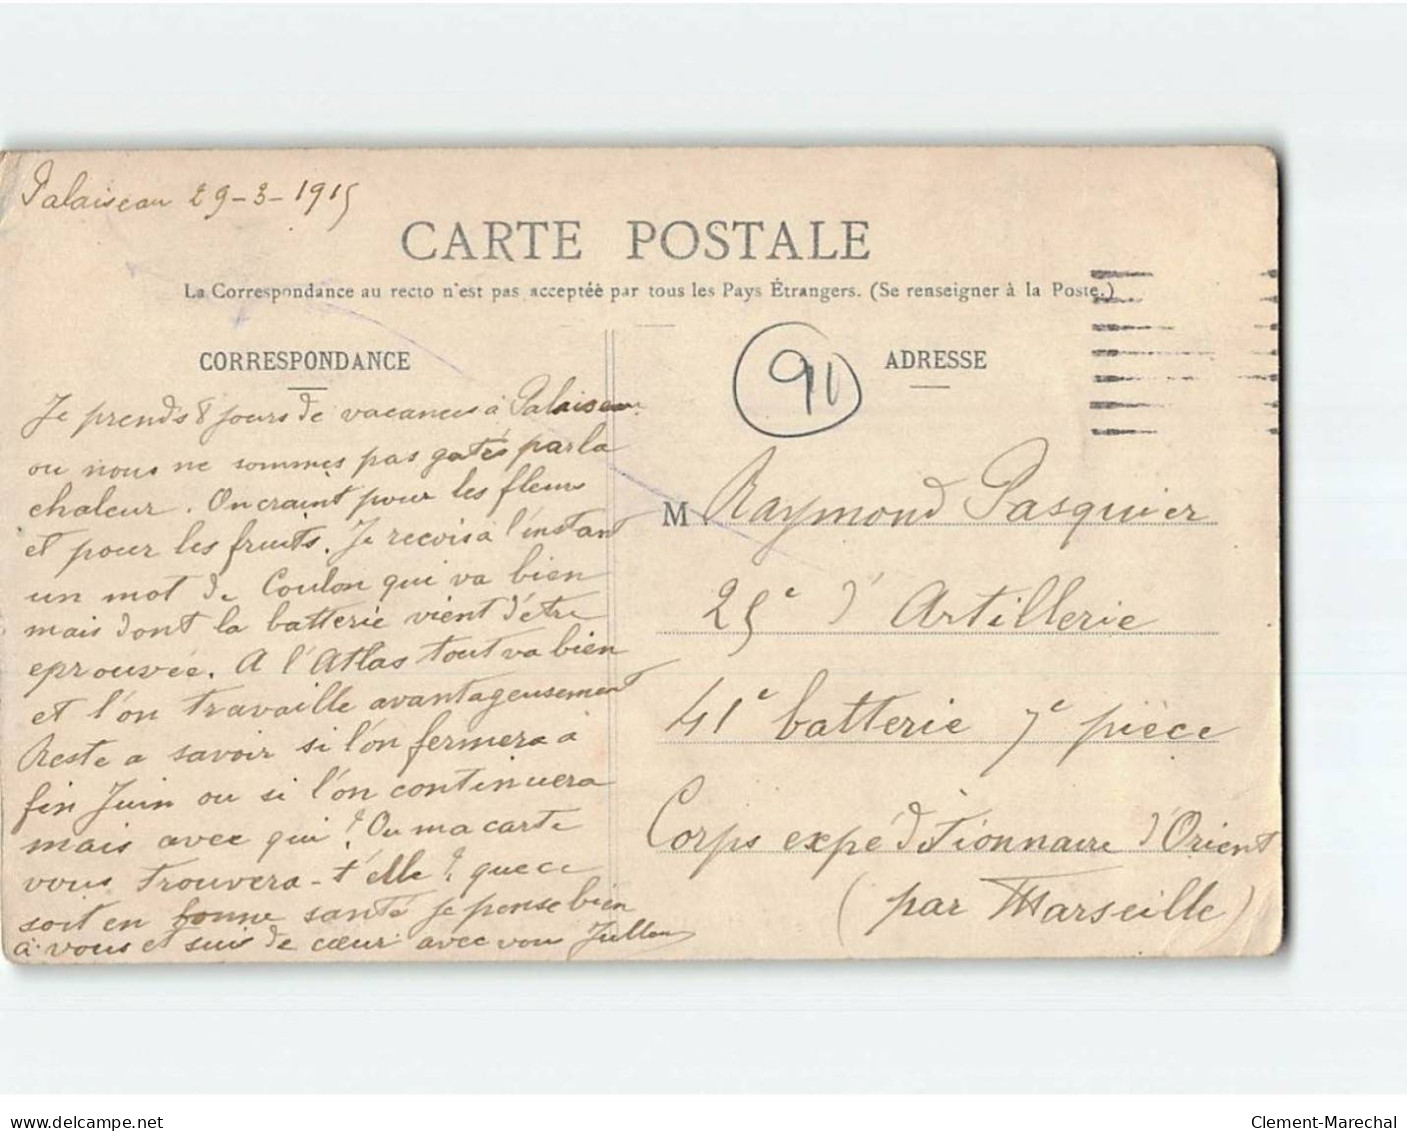 Palaiseau 29-3-1915
CARTE POSTALE
La Correspondance au recto n'est pas acceptée par tous les Pays Étrangers. (Se renseigner à la Poste.)
CORRESPONDANCE
Je prends 8 jours de vacances à Palaiseau
ou nous ne sommes pas gatés par la
chaleur. On craint pour les fleurs
et pour les fruits. Je recois a l'instant
un mot de Coulon qui va bien
mais dont la batterie vient d'être
eprouvée. A l'Atlas tout va bien
et l'on travaille avantageusement
Reste a savoir si l'on fermera à
fin Juin ou si l'on continuera
mais avec qui ? Ou ma carte
vous trouvera-t'elle ? que ce
soit en bonne santé je pense bien
à vous et suis de cœur avec vous
91
ADRESSE
M Raymond Pasquier
25e d'Artillerie
41e batterie 7e pièce
Corps expéditionnaire d'Orient
(par Marseille)
delcampe.net
Clement-Marechal